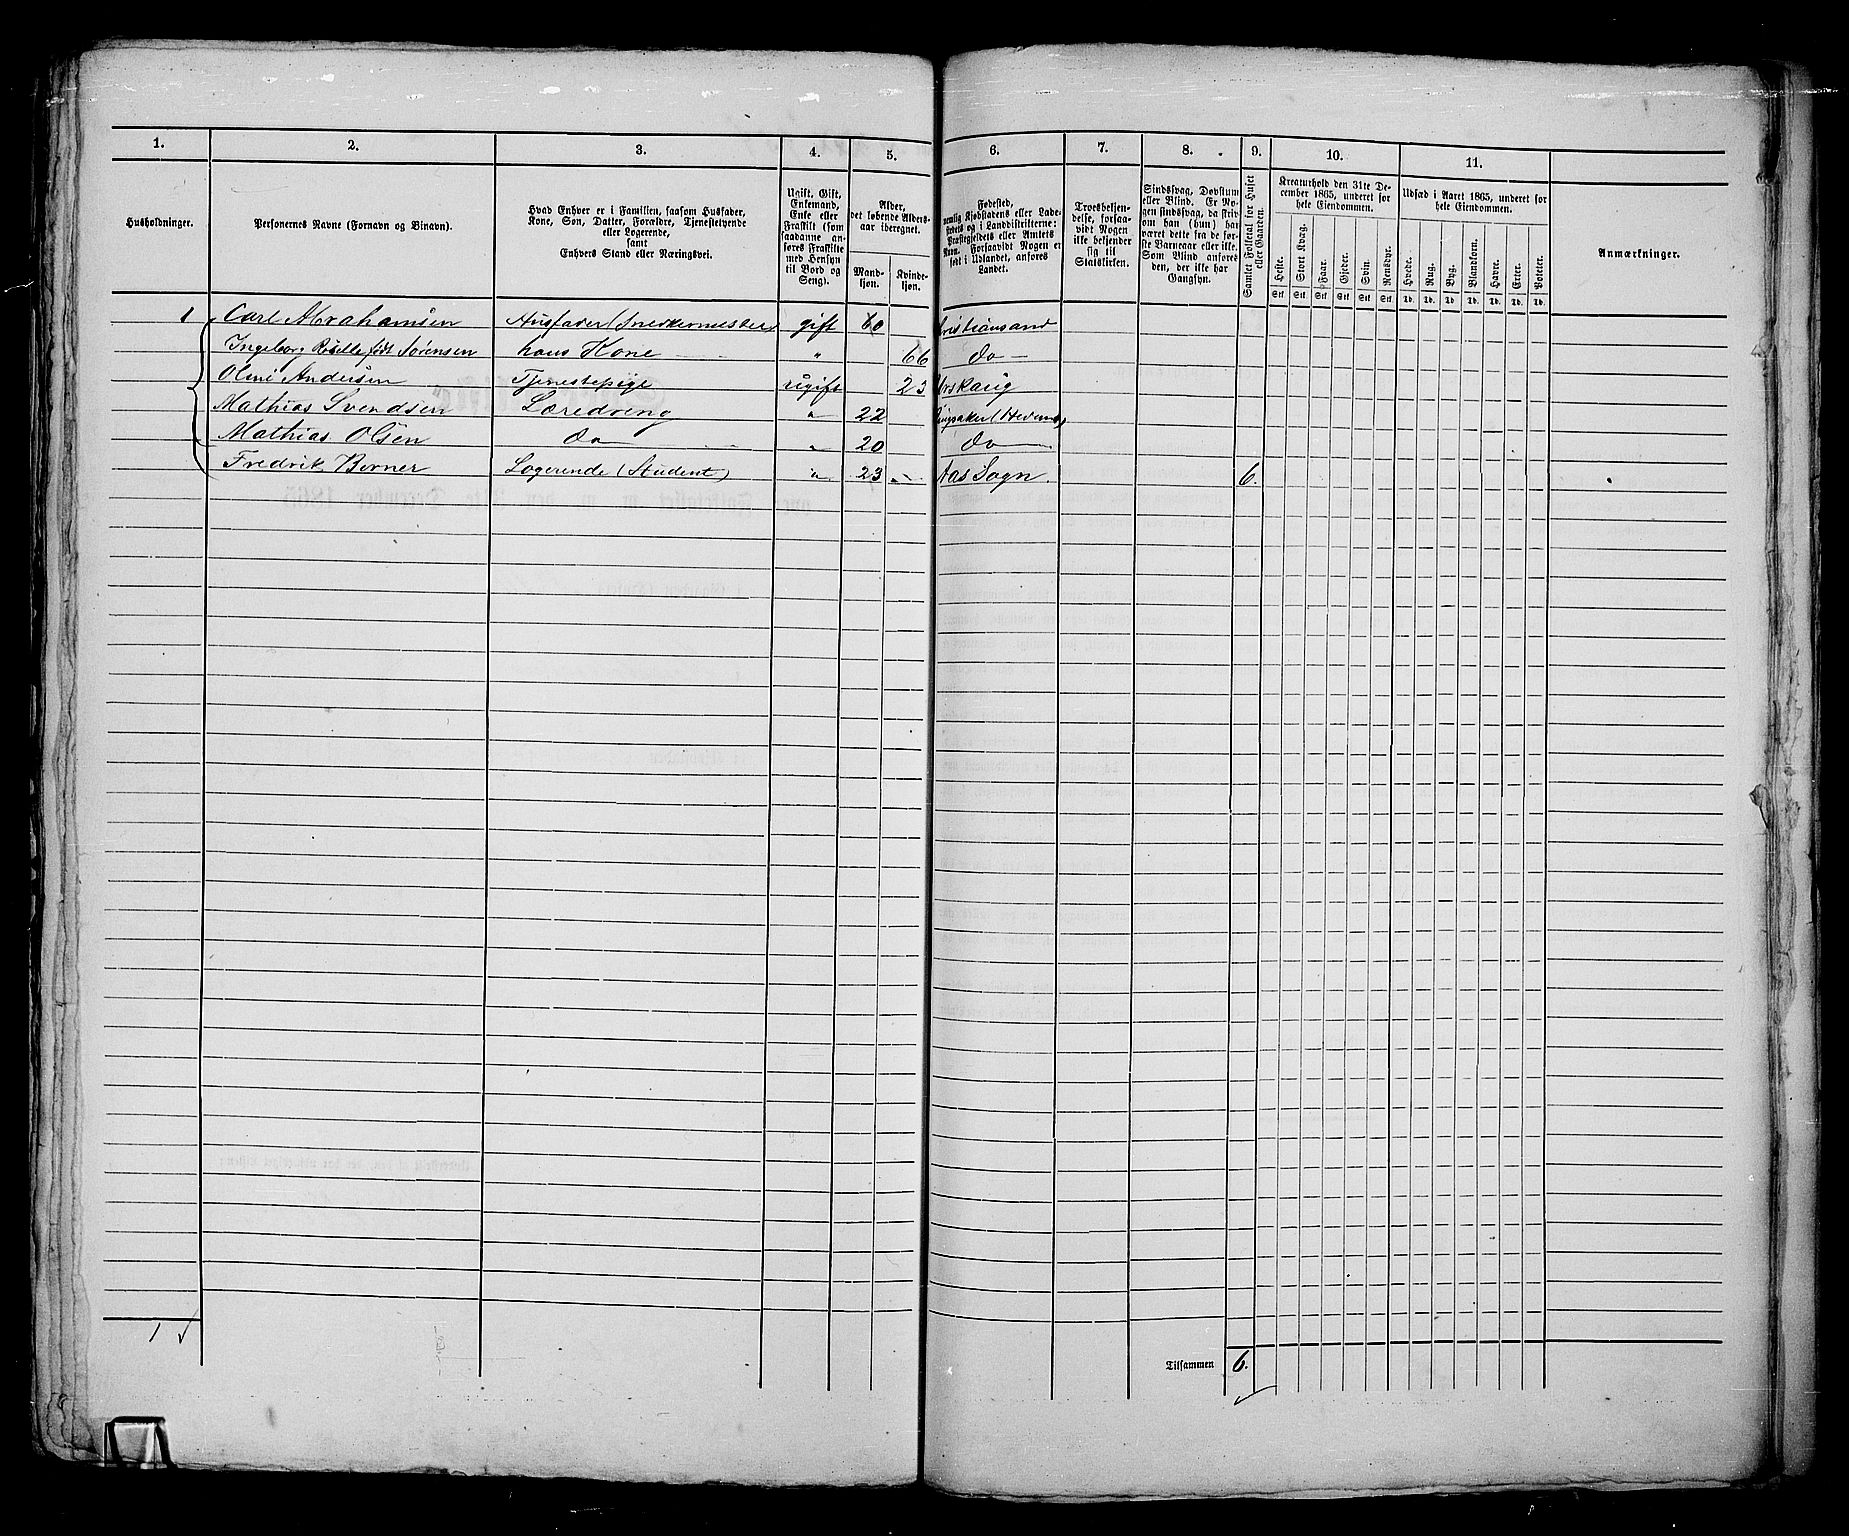 1. 2. 3. 4. 5. 6. 7. 8. 9. 10. 11.
Husholdninger.
Personernes Navne (Fornavn og Binavn).
Hvad Enhver er i Familien, saasom Husfader,
Kone, Søn, Datter, Forældre, Tjenestetyende
eller Logerende,
samt
Enhvers Stand eller Næringsvei.
Ugift, Gift,
Enkemand,
Enke eller
Fraskilt (som
saadanne an-
føres Fraskilte
med Hensyn
til Bord og
Seng).
Alder,
det løbende Alders-
aar iberegnet.
Mand-
kjøn.
Kvinde-
kjøn.
Fødested,
nemlig Kjøbstadens eller Lade-
stedets og i Landdistrikterne:
Præstegjeldets eller Amtets
Navn. Forsaavidt Nogen er
født i Udlandet, anføres
Landet.
Troesbekjen-
delse, forsaa-
vidt Nogen
ikke bekjender
sig til
Statskirken.
Sindssvag, Døvstum
eller Blind. Er No-
gen sindssvag, da skriv
om han (hun) har
været dette fra de før-
ste Barneaar eller ikke.
Som Blind anføres
den, der ikke har
Gangsyn.
Samlet Folketal for Huset
eller Gaarden.
Kreaturhold den 31te De-
cember 1865, underet for
hele Eiendommen.
Heste. Stort Kvæg. Faar. Gjeder. Svin. Rensdyr.
Stk. Stk. Stk. Stk. Stk. Stk.
Udsæd i Aaret 1865, underet for
hele Eiendommen.
Hvede. Rug. Byg. Blandkorn. Havre. Erter. Poteter.
Td. Td. Td. Td. Td. Td. Td.
Anmærkninger.
1 Carl Abrahamsen Husfader (Snedkermester) gift 60 Kristiansand
Ingeborg født Sørensen hans Kone " 66 do
Andersen Tjenestepige ugift 23
Mathias Svendsen Læredreng " 22 Ringsaker (Hedem)
Mathias Olsen do " 20 do
Fredrik Borner Logerende (Student) " 23 Aas Sogn. 6.
1 ✓
Tilsammen 6.
✓